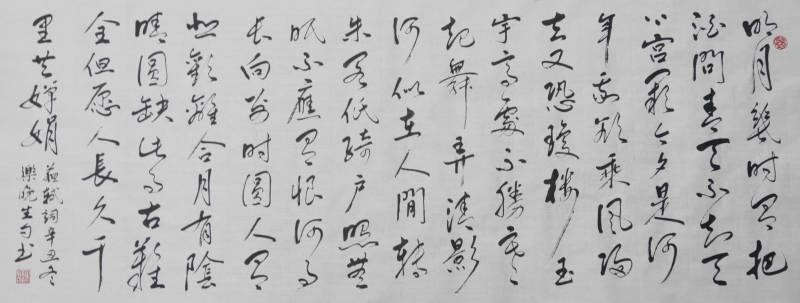 明月幾时有把
酒問青天不知天
上宫阙今夕是何
年我欲乘風歸
去又恐瓊楼玉
宇高處不勝寒
起舞弄清影
何似在人間轉
朱阁低绮户照無
眠不應有恨何事
长向别时圆人有
悲歡離合月有陰
晴圆缺此事古難
全但愿人長久千
里共嬋娟
蘇軾詞辛丑冬
樂晚生书